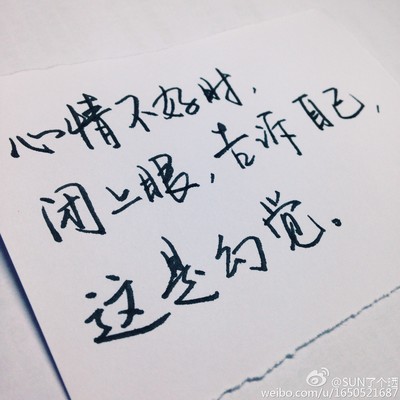 心情不好时,
闭上眼,告诉自己,
这是幻觉。
@SUN了个
weibo.com/u/1650521687